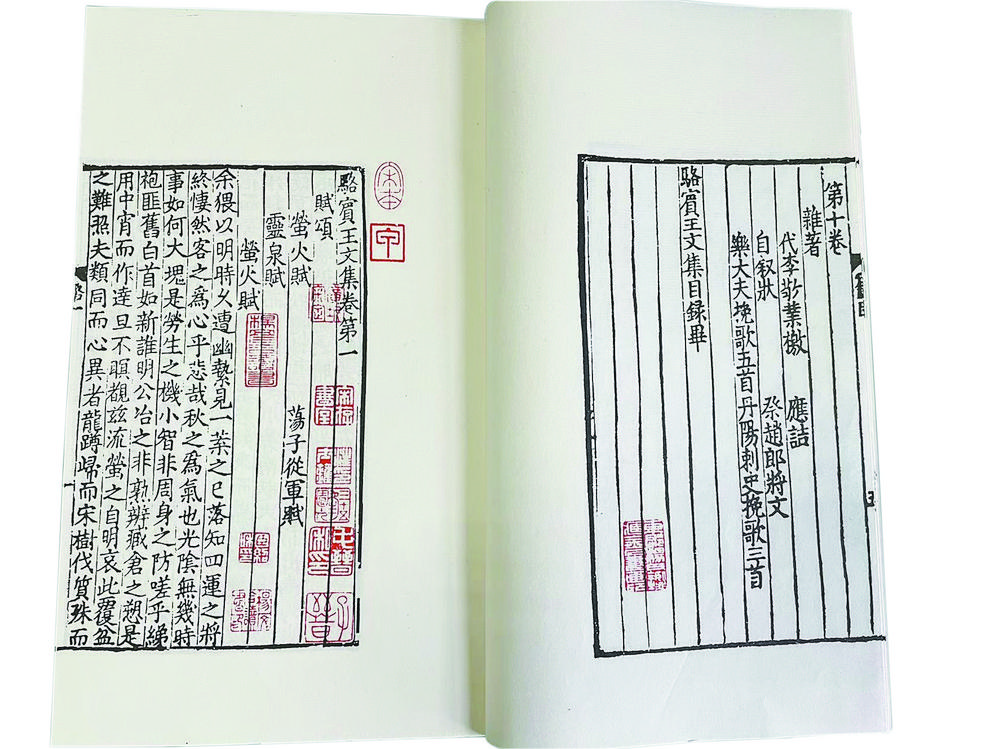 第十卷
雜著
代李敬業檄　應詰
自叙狀　祭趙郎將文
樂大夫挽歌五首丹陽刺史挽歌三首
駱賓王文集目録畢
五
宋本
甲
駱賓王文集卷第一
賦頌
螢火賦　蕩子從軍賦
靈泉賦
螢火賦
余猥以明時久遭幽縶見一葉之已落知四運之將
終悽然客之爲心乎悲哉秋之爲氣也光陰無幾時
事如何大塊是勞生之機小智非周身之防嗟乎綈
袍匪舊白首如新誰明公冶之非孰辨臧倉之愬是
用中宵而作達旦不暝覩兹流螢之自明哀此覆盆
之難照夫類同而心異者龍蹲歸而宋樹伐質殊而